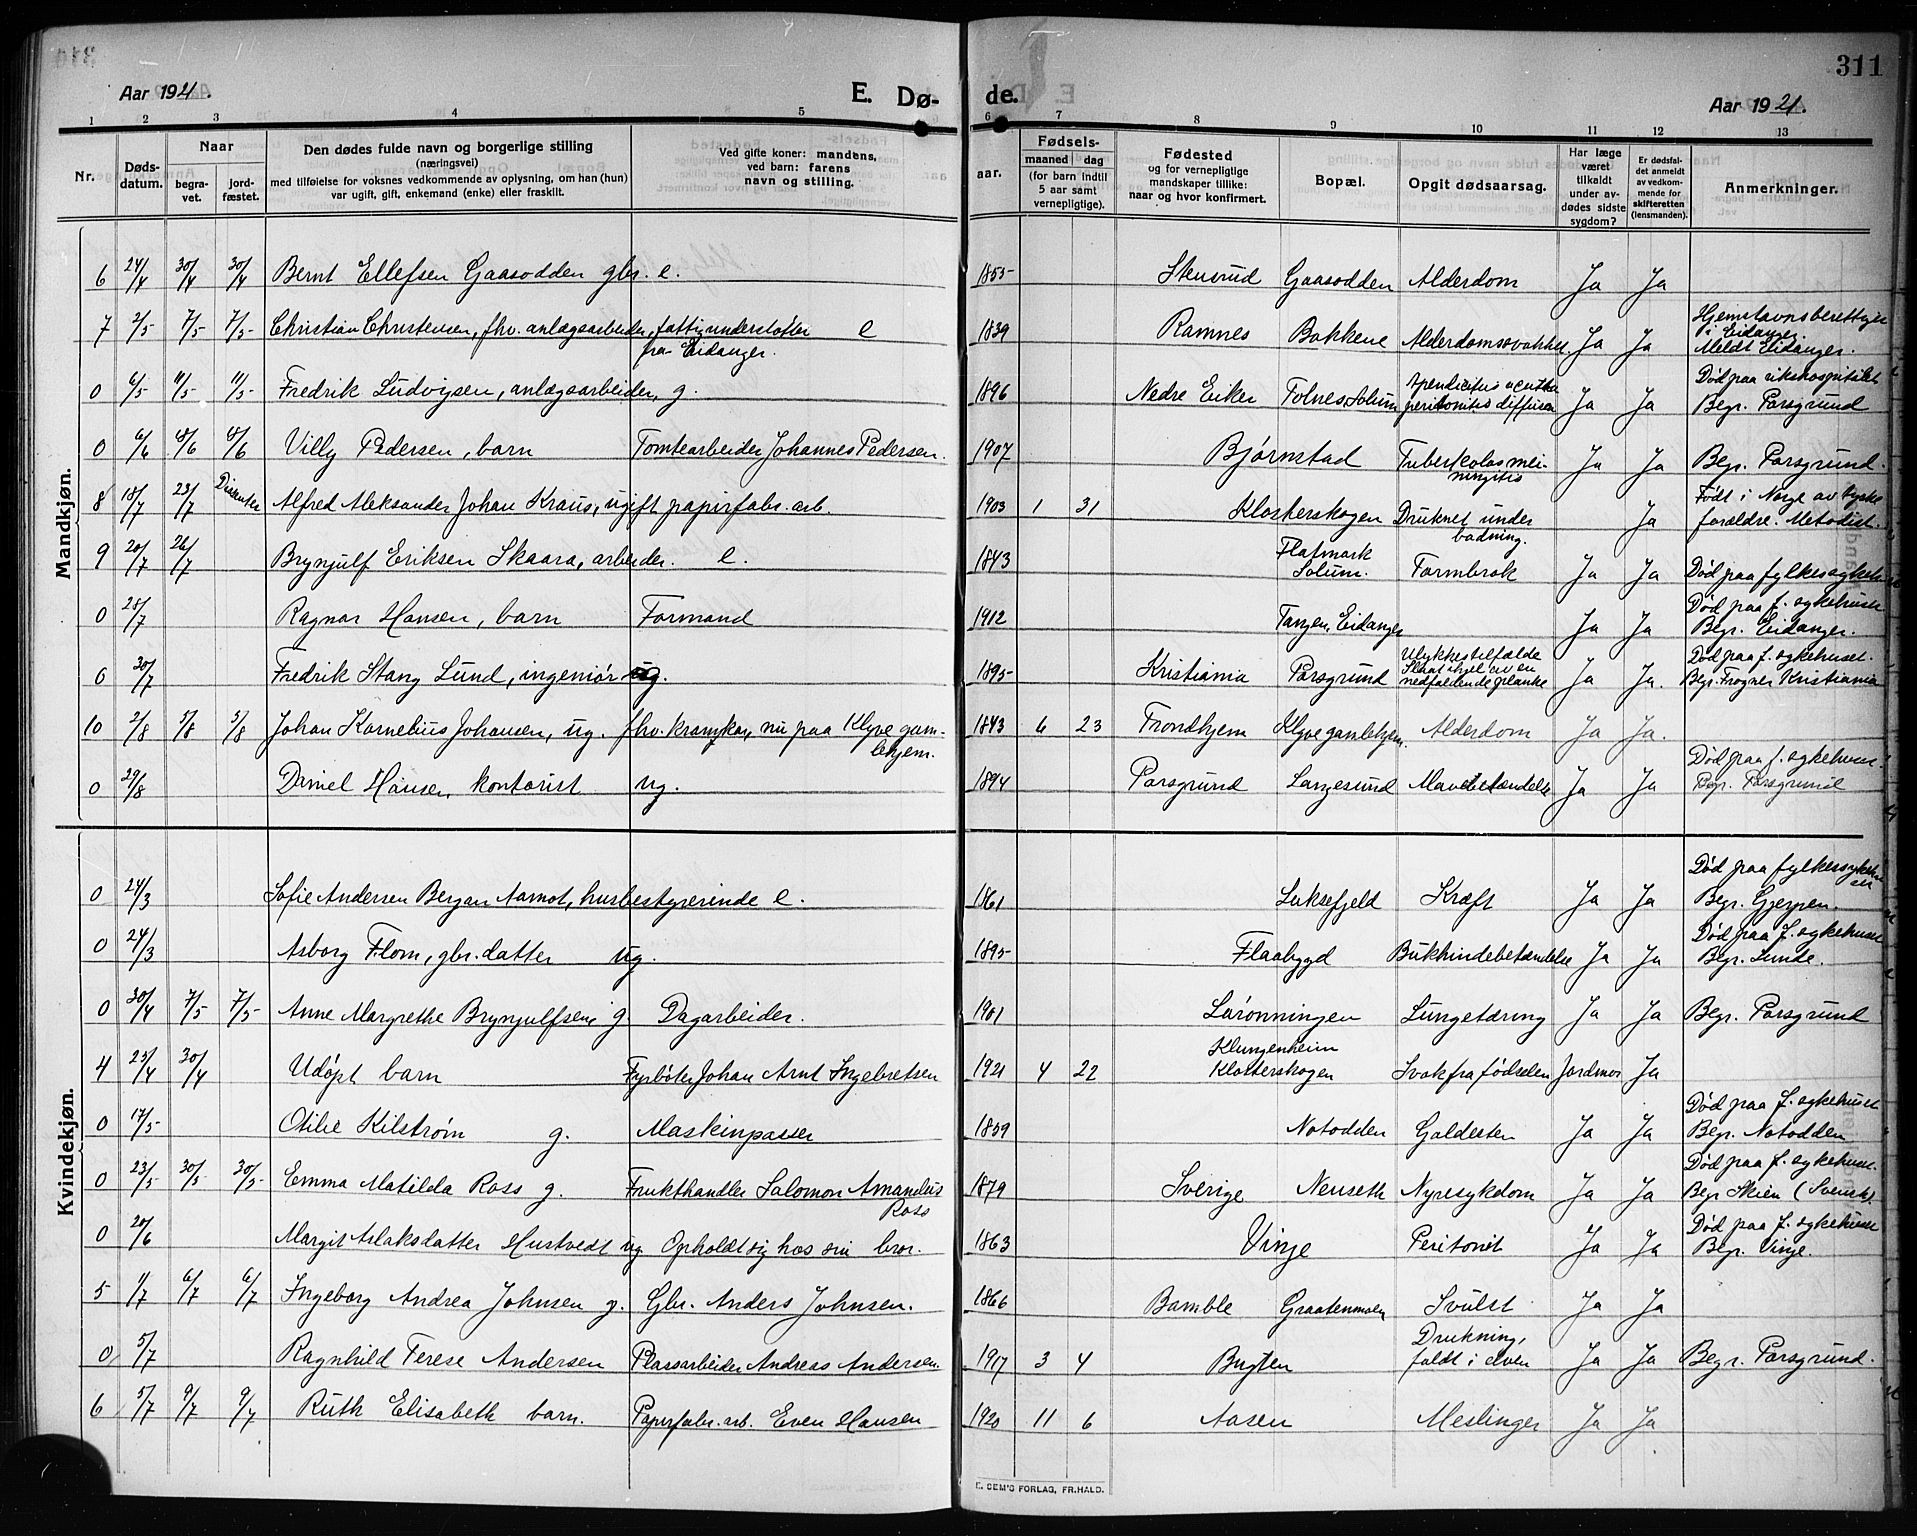 311
Aar 1921. E. Dø- de. Aar 1921.
1 2 3 4 5 6 7 8 9 10 11 12 13
Nr. Døds-datum. Naar begra-vet. jord-fæstet. Den dødes fulde navn og borgerlige stilling (næringsvei) med tilføielse for voksnes vedkommende av oplysning, om han (hun) var ugift, gift, enkemand (enke) eller fraskilt. Ved gifte koner: mandens, ved barn: farens navn og stilling. aar. Fødsels- maaned dag (for barn indtil 5 aar samt vernepligtige). Fødested og for vernepligtige mandskaper tillike: naar og hvor konfirmert. Bopæl. Opgit dødsaarsag. Har læge været tilkaldt under av-dødes sidste sygdom? Er dødsfal-det anmeldt av vedkom-mende for skifteretten (lensmanden). Anmerkninger.
Mandkjøn.
6 24/4 30/4 30/4 Bernt Ellefsen Gaasodden gbr. e. 1855 Stensrud Gaasodden Alderdom Ja Ja
7 2/5 7/5 7/5 Christian Christensen, fhv. anlægsarbeider, fattigunderstøttet fra Eidanger. e 1839 Ramnes Bakkene Alderdomssvakhet Ja Ja Hjemstavnsberettiget i Eidanger. Meldt Eidanger.
0 6/5 11/5 11/5 Fredrik Ludvigsen, anlægsarbeider, g. 1896 Nedre Eiker Folnes, Solum Apendicitus acutha peritonitis diffusa Ja Ja Død paa rikshospitalet Begr. Porsgrund
0 6/6 8/6 8/6 Villy Pedersen, barn Tomtearbeider Johannes Pedersen. 1907 Bjørnstad Tuberkoløs meiningitis Ja Ja Begr. Porsgrund.
8 18/7 23/7 Dissenter Alfred Aleksander Johan Kraus, ugift papirfabr. arb. 1903 1 31 Klosterskogen Druknet under badning. Ja Født i Norge av tyske forældre. Metodist.
9 20/7 26/7 Brynjulf Eriksen Skaara, arbeider. e. 1843 Flatmark Solum. Tarmbrok Ja Ja Død paa fylkessykeh.
0 28/7 Ragnar Hansen, barn Formand 1912 Tangen, Eidanger Ja Ja Død paa f. sykehuset Begr. Eidanger.
0 30/7 Fredrik Stang Lund, ingeniør ug. 1895 Kristiania Porsgrund Ulykkestilfælde Slaat ihjel av en nedfaldende planke Ja Ja. Død paa f. sykehuset. Begr. Frogner Kristiania
10 2/8 5/8 5/8 Johan Kornelius Johansen, ug. fhv. kramkar, nu paa Klyve gamlehjem. 1843 6 23 Trondhjem Klyve gamlehjem. Alderdom Ja Ja.
0 29/8 Daniel Hansen, kontorist ug. 1894 Porsgrund Langesund Mavebetændelse Ja Ja Død paa f. sykehuset. Begr. Porsgrund
Kvindekjøn.
0 24/3 Sofie Andersen Bergan Aamot, husbestyrerinde e. 1861 Luksefjeld Kræft Ja Ja Død paa fylkessykehuset Begr. Gjerpen.
0 24/3 Asborg Flom, gbr. datter ug. 1895 Flaabygd Bukhindebetændelse Ja Ja Død paa f. sykehuset Begr. Lunde.
0 30/4 7/5 7/5 Anne Margrethe Brynjulfsen g. Dagarbeider. 1901 Lørønningen Lungetæring Ja Ja Begr. Porsgrund
4 23/4 30/4 Udøpt barn Fyrbøter Johan Arnt Ingebretsen 1921 4 22 Klungenheim Klosterskogen Svak fra fødselen Jordmor Ja
0 17/5 Otilie Kilstrøm g. Maskinpasser 1859 Notodden Galdesten Ja Ja Død paa f. sykehuset Begr. Notodden
0 23/5 30/5 30/5 Emma Matilda Ross g. Frukthandler Salomon Amandus Ross 1879 Sverige Nenseth Nyresykdom Ja Ja Død paa f. sykehuset. Begr Skien (Svensk).
0 20/6 Margit Aslaksdatter Hustvedt ug Opholdt sig hos sin bror. 1863 Vinje Peritonit Ja Ja Død paa f. sykehuset Begr. Vinje.
5 1/7 6/7 6/7 Ingeborg Andrea Johnsen g. Gbr. Anders Johnsen. 1866 Bamble Graatenmoen Svulst Ja Ja
0 5/7 Ragnhild Terese Andersen Plassarbeider Andreas Andersen. 1917 3 4 Bugten Drukning, faldt i elven Ja Ja Begr. Porsgrund.
6 5/7 9/7 9/7 Ruth Elisabeth barn. Papirfabr. arb. Even Hansen 1920 11 6 Aasen Meslinger Ja Ja
E. SEM'S FORLAG, FR.HALD.